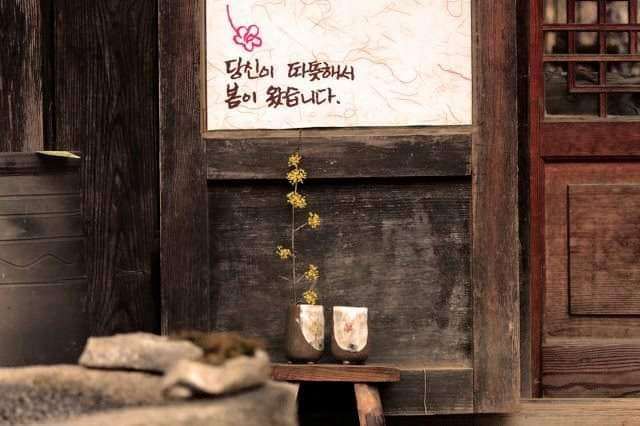 당신이 따뜻해서
봄이 왔습니다.